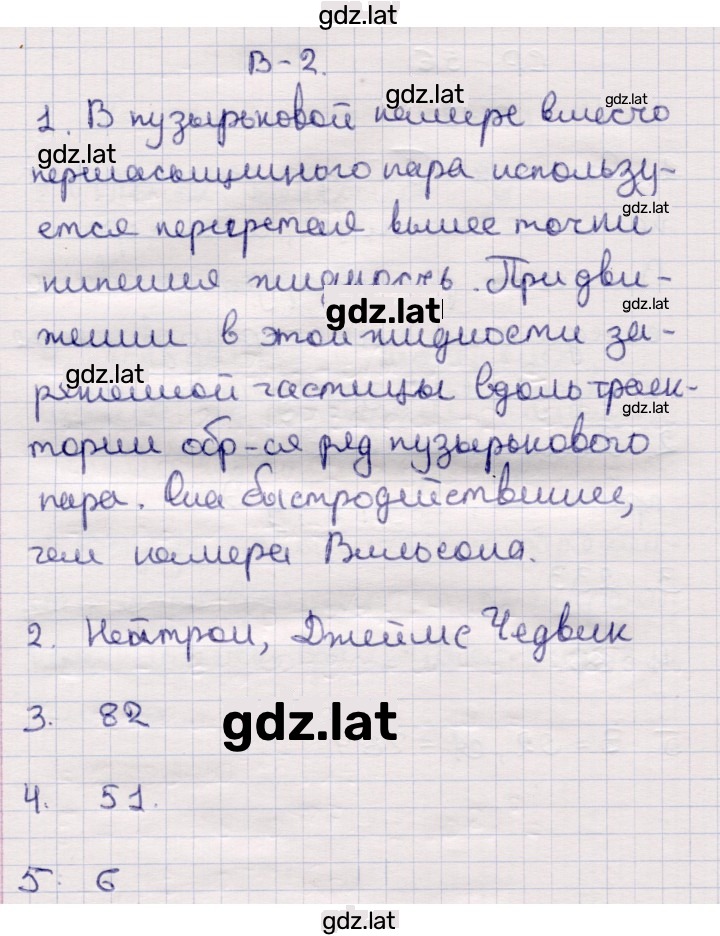 gdz.lat
В-2.
gdz.lat
gdz.lat
1. В пузырьковой камере вместо
gdz.lat
перенасыщенного пара использу-
gdz.lat
ется перегретая выше точки
кипения жидкость. При дви-
gdz.lat
gdz.lat
жении в этой жидкости за-
gdz.lat
ряженной частицы вдоль траек-
gdz.lat
тории обр-ся ряд пузырькового
пара. Она быстродейственнее,
чем камера Вильсона.
2. Нейтрон, Джеймс Чедвик
3. 82
gdz.lat
4. 51.
5. 6
gdz.lat